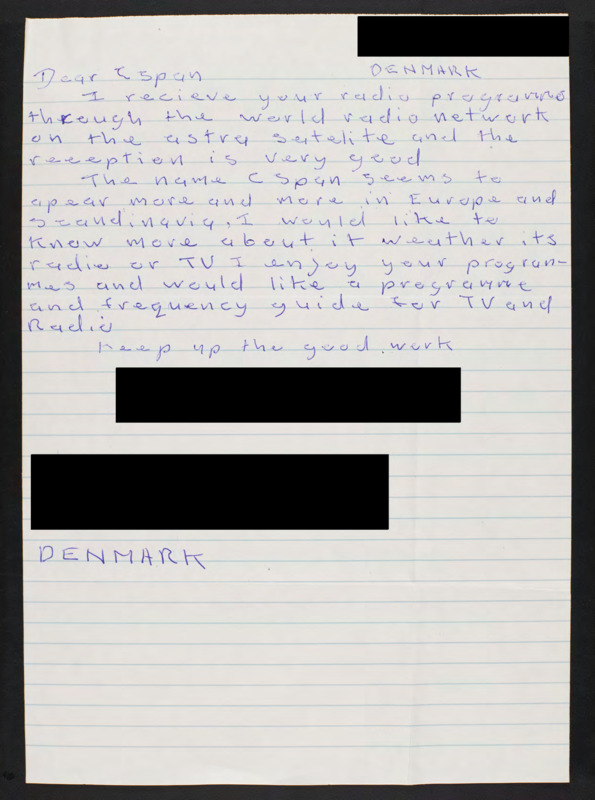 DENMARK
Dear C Span
I recieve your radio programms
through the world radio network
on the astra satelite and the
reception is very good
The name C Span seems to
apear more and more in Europe and
scandinavia, I would like to
know more about it weather its
radio or TV I enjoy your program-
mes and would like a programme
and frequency guide for TV and
Radio
Keep up the good work
DENMARK